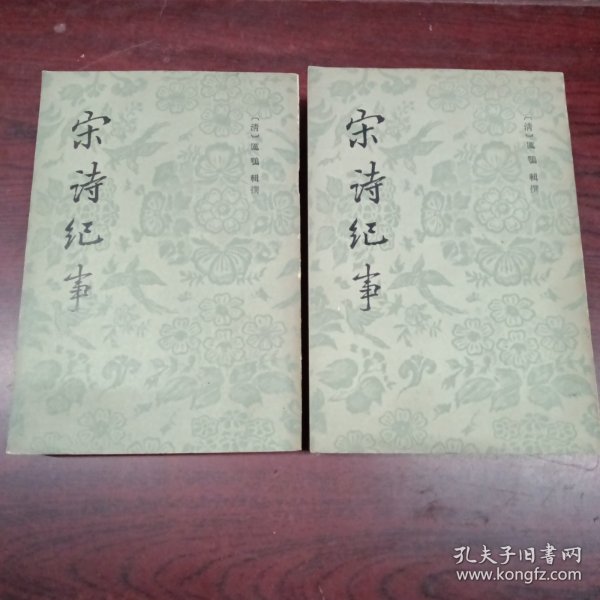 宋诗纪事
〔清〕厲鶚 輯撰
宋诗纪事
〔清〕厲鶚 輯撰
孔夫子旧书网
www.kongfz.com